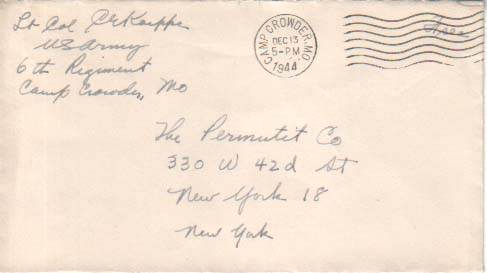 Lt Col CE Koeppe
US Army
6th Regiment
Camp Crowder, Mo
CAMP CROWDER, MO.
DEC 13
5-PM
1944
Free
The Permutit Co
330 W 42d St
New York 18
New York